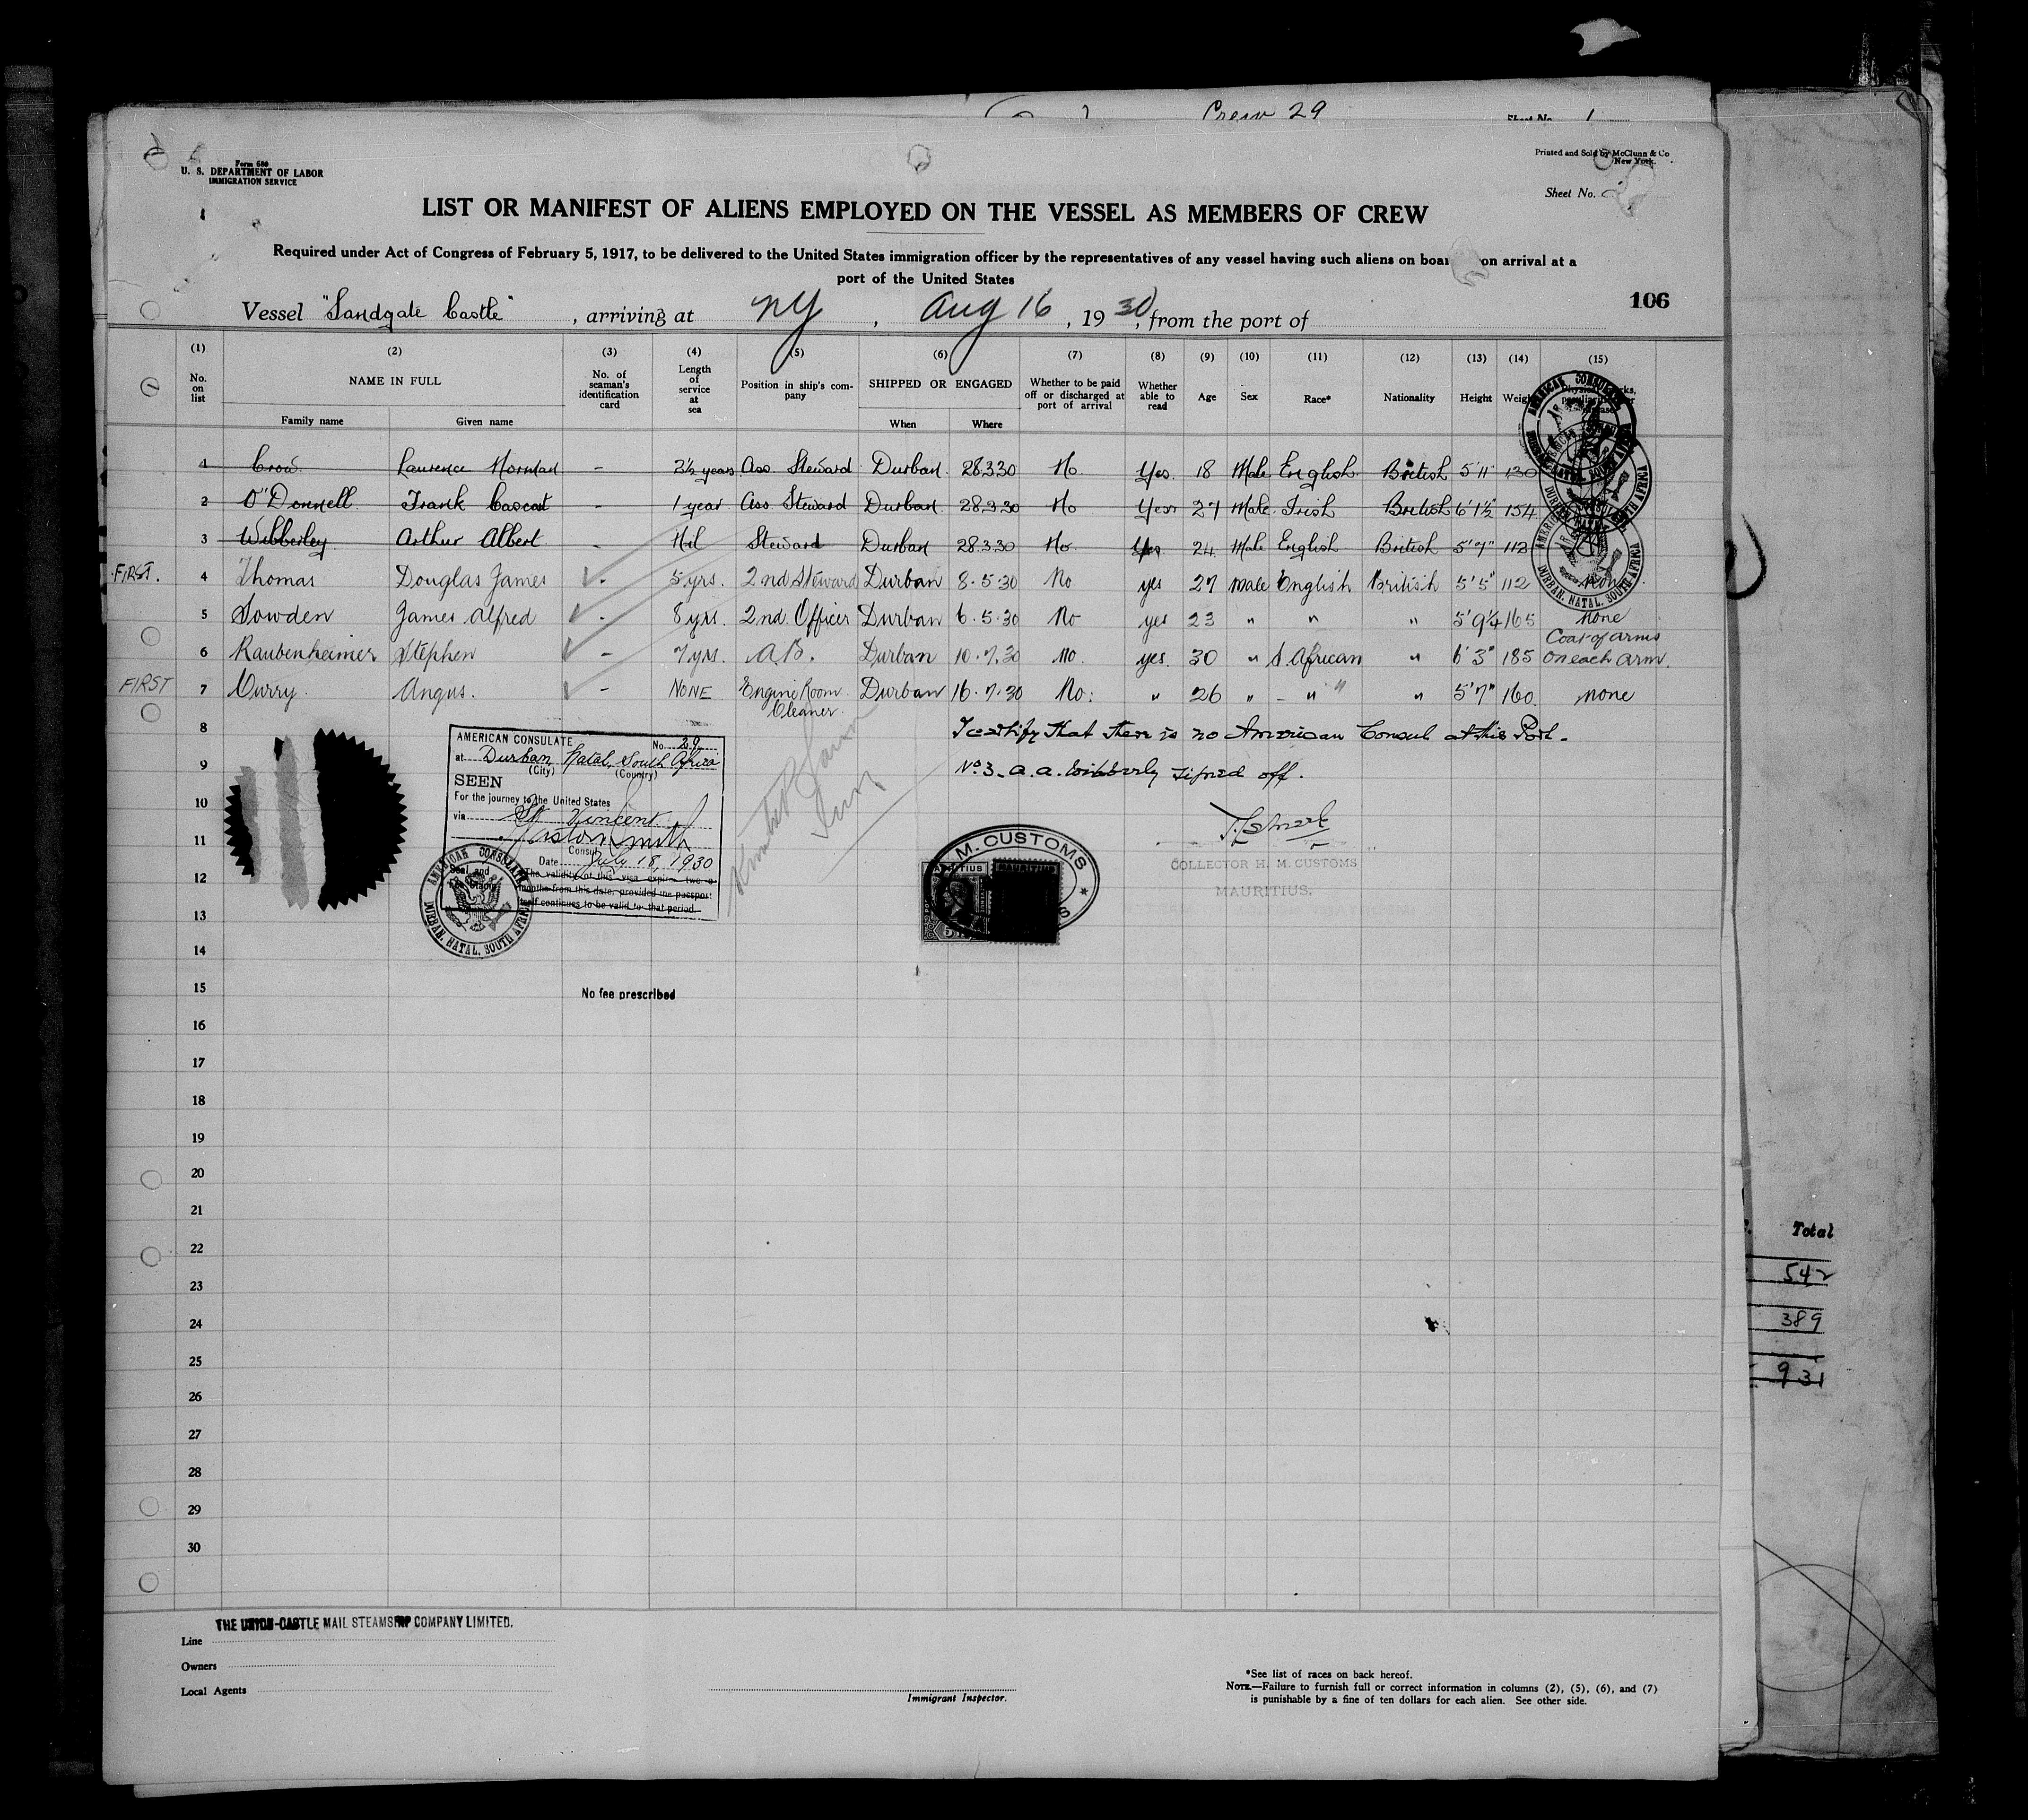 Crew 29
Sheet No. 1
Form 680
U. S. DEPARTMENT OF LABOR
IMMIGRATION SERVICE
Printed and Sold by McClunn & Co
New York.
Sheet No.
LIST OR MANIFEST OF ALIENS EMPLOYED ON THE VESSEL AS MEMBERS OF CREW
Required under Act of Congress of February 5, 1917, to be delivered to the United States immigration officer by the representatives of any vessel having such aliens on boar on arrival at a
port of the United States
106
Vessel "Sandgate Castle", arriving at NY, Aug 16, 1930, from the port of
(1) (2) (3) (4) (5) (6) (7) (8) (9) (10) (11) (12) (13) (14) (15)
No. on list NAME IN FULL No. of seaman's identification card Length of service at sea Position in ship's company SHIPPED OR ENGAGED Whether to be paid off or discharged at port of arrival Whether able to read Age Sex Race* Nationality Height Weight
Family name Given name When Where
1 Crow Laurence Norman - 2½ years Ass. Steward Durban 28.3.30 No Yes. 18 Male English British 5'11" 130
2 O'Donnell Frank - 1 year Ass Steward Durban 28.3.30 No Yes 27 Male Irish British 6'1½ 154
3 Wibberley Arthur Albert - Nil Steward Durban 28.3.30 No Yes 24 Male English British 5'7" 112
FIRST. 4 Thomas Douglas James - 5 yrs. 2nd Steward Durban 8.5.30 No yes 27 male English British 5'5" 112 None
5 Sowden James Alfred - 8 yrs. 2nd Officer Durban 6.5.30 No yes 23 " " " 5'9¼ 165 None
6 Raubenheimer Stephen - 7 yrs. A.B. Durban 10.7.30 No. yes. 30 " S. African " 6'3" 185 Coat of arms on each arm.
FIRST 7 Curry Angus. - NONE Engine Room Cleaner Durban 16.7.30 No. " 26 " - " " " 5'7" 160. None
8 I certify that there is no American Consul at this Port.
9 No. 3. A. A. Wibberly signed off.
10
11
12
13
14
15
16
17
18
19
20
21
22
23
24
25
26
27
28
29
30
AMERICAN CONSULATE No. 29
at Durban Natal, South Africa
(City) (Country)
SEEN
For the journey to the United States
via St Vincent
Gaston Smith
Consul
Date July 18, 1930
Seal and Fee Stamp.
The validity of this visa expires two
months from this date, provided the passport
itself continues to be valid for that period.
AMERICAN CONSULATE
DURBAN, NATAL, SOUTH AFRICA
No fee prescribed
M. CUSTOMS
MAURITIUS
COLLECTOR H. M. CUSTOMS
MAURITIUS.
AMERICAN CONSULATE
DURBAN, NATAL, SOUTH AFRICA
Total
542
389
931
THE UNION-CASTLE MAIL STEAMSHIP COMPANY LIMITED.
Line
Owners
Local Agents
Immigrant Inspector.
*See list of races on back hereof.
NOTE.—Failure to furnish full or correct information in columns (2), (5), (6), and (7)
is punishable by a fine of ten dollars for each alien. See other side.